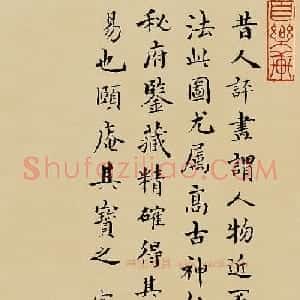 昔人評畫謂人物近
法此圖尤属髙古神
秘府鑒藏精確得其
易也頤庵其寳之
Shufaziliao.COM